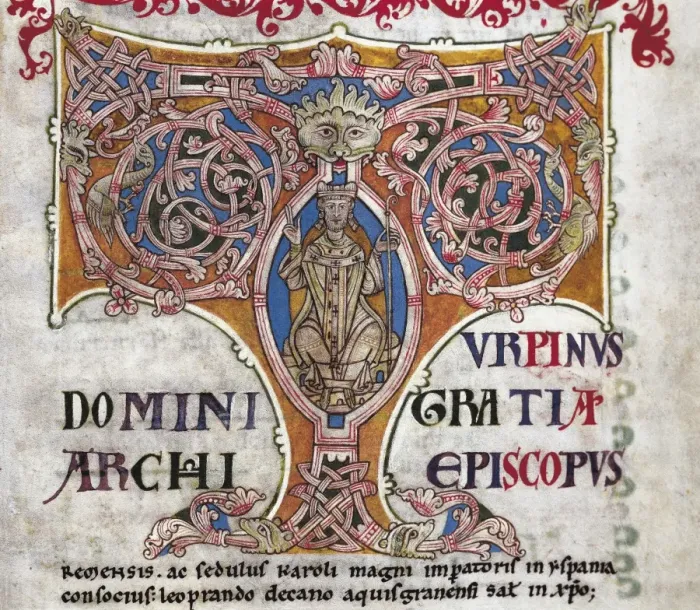 TURPINUS
DOMINI GRATIA
ARCHIEPISCOPVS
Remensis. ac sedulus karoli magni imꝑatoris in yspania
consocius: leoprando decano aquisgranensi saƚ in xp̄o;